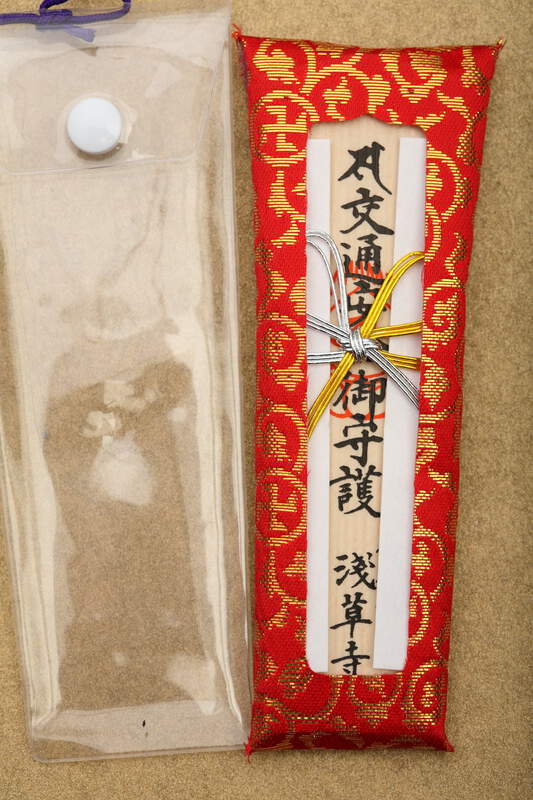 交通安全御守護 淺草寺